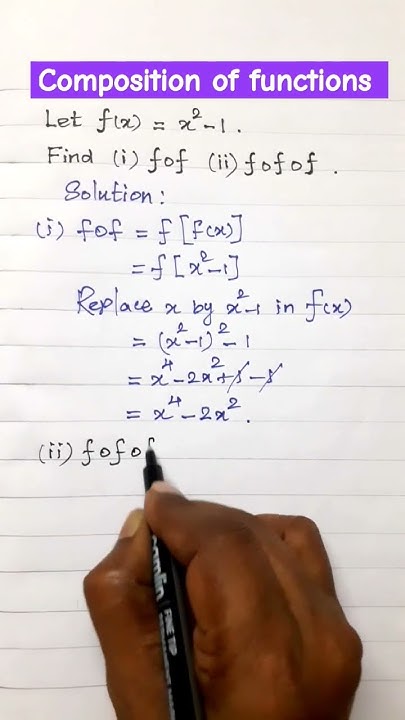 Composition of functions
Let f(x) = x²-1.
Find (i) fof (ii) fofof.
Solution:
(i) fof = f[f(x)]
= f[x²-1]
Replace x by x²-1 in f(x)
= (x²-1)²-1
= x⁴-2x²+1-1
= x⁴-2x².
(ii) fofof
camlin
FINE TIP